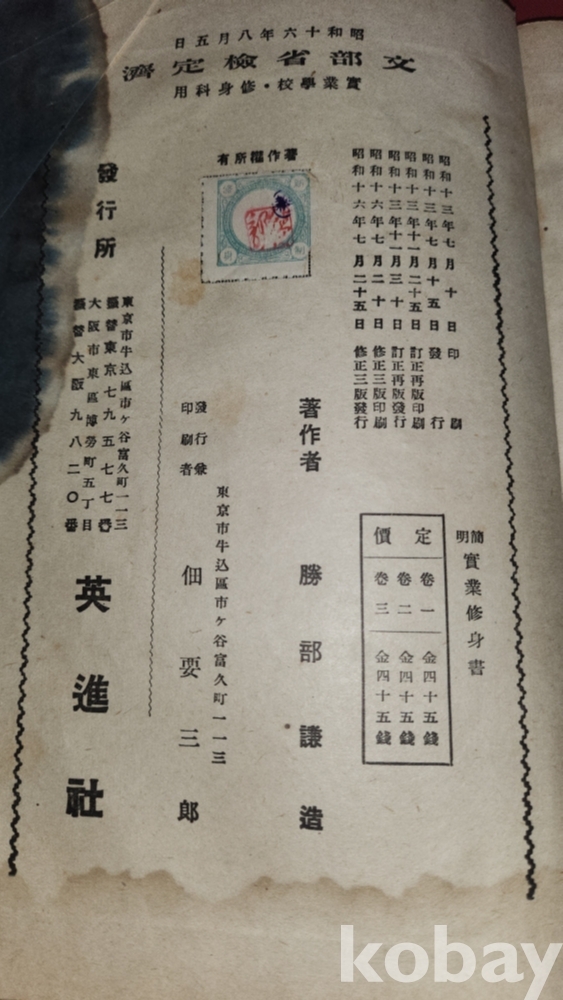 昭和十六年八月五日
文部省檢定濟
實業學校・修身科用
簡明 實業修身書
定價
卷一 金四十五錢
卷二 金四十五錢
卷三 金四十五錢
昭和十三年七月十日印刷
昭和十三年七月十五日發行
昭和十三年十一月二十五日訂正再版印刷
昭和十三年十一月三十日訂正再版發行
昭和十六年七月二十日修正三版印刷
昭和十六年七月二十五日修正三版發行
著作權所有
著作者 勝部謙造
東京市牛込區市ヶ谷富久町一一三
發行兼印刷者 佃要三郎
發行所
東京市牛込區市ヶ谷富久町一一三
振替東京七九五七七番
大阪市東區博勞町五丁目
振替大阪九八二〇番
英進社
kobay